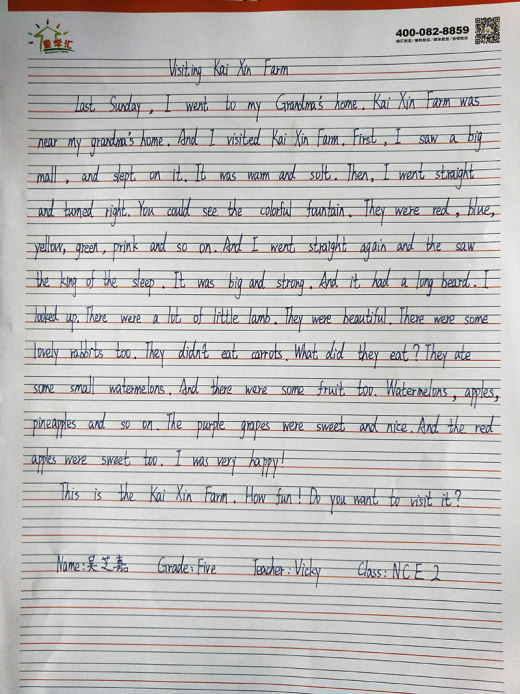 爱学汇
400-082-8859
Visiting Kai Xin Farm
Last Sunday, I went to my Grandma's home. Kai Xin Farm was
near my grandma's home. And I visited Kai Xin Farm. First, I saw a big
mall, and slept on it. It was warm and soft. Then, I went straight
and tuned right. You could see the colorful fountain. They were red, blue,
yellow, green, prink and so on. And I went straight again and the saw
the king of the sleep. It was big and strong. And it had a long beard. I
looked up. There were a lot of little lamb. They were beautiful. There were some
lovely rabbits too. They didn't eat carrots. What did they eat? They ate
some small watermelons. And there were some fruit too. Watermelons, apples,
pineapples and so on. The purple grapes were sweet and nice. And the red
apples were sweet too. I was very happy!
This is the Kai Xin Farm. How fun! Do you want to visit it?
Name: 吴芝嘉 Grade: Five Teacher: Vicky Class: NCE 2